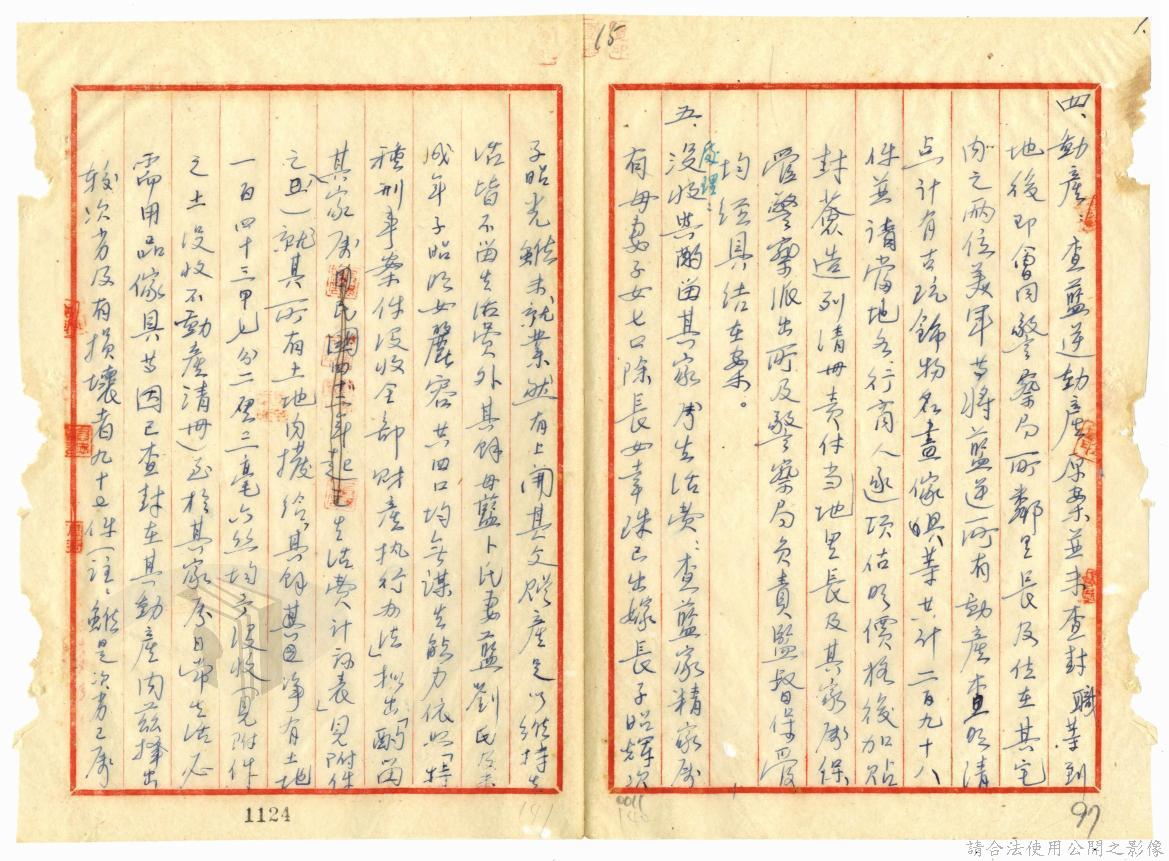 15
1.
四、動產：查藍逆動產原案並未查封職等到
地後即會同警察局所鄰里長及住在其宅
內之兩位美軍等將藍逆所有動產查明清
点計有古玩飾物名畫傢俱等共計二百九十八
件並請當地各行商人逐項估明價格後加貼
封簽造列清冊責付当地里長及其家屬保
管警察派出所及警察局負責監督保管
均經具結在案。
處理：
五、沒收與酌留其家屬生活費：查藍家精家屬
有母妻子女七口除長女幸珠已出嫁長子昭輝次
子昭光雖未就業然有上開其父贈產足以維持生
活皆不留生活費外其餘母藍卜氏妻藍劉氏及未
成年子昭明女麗容共四口均無謀生能力依照「特
種刑事案件沒收全部財產執行办法」擬出「酌留
其家屬自民國四十二年起之生活費計祘表」見附件
之且）就其所有土地內撥給其餘其田淨有土地
一百四十三甲七分二厘三毫六丝均予沒收（見附件
之土沒收不動產清冊）至於其家屬日常生活必
需用品傢具等因已查封在其動產內茲擇出
較次劣及有損壞者九十七件（註：雖是次劣已屬
1124
141
0011
140
97
請合法使用公開之影像